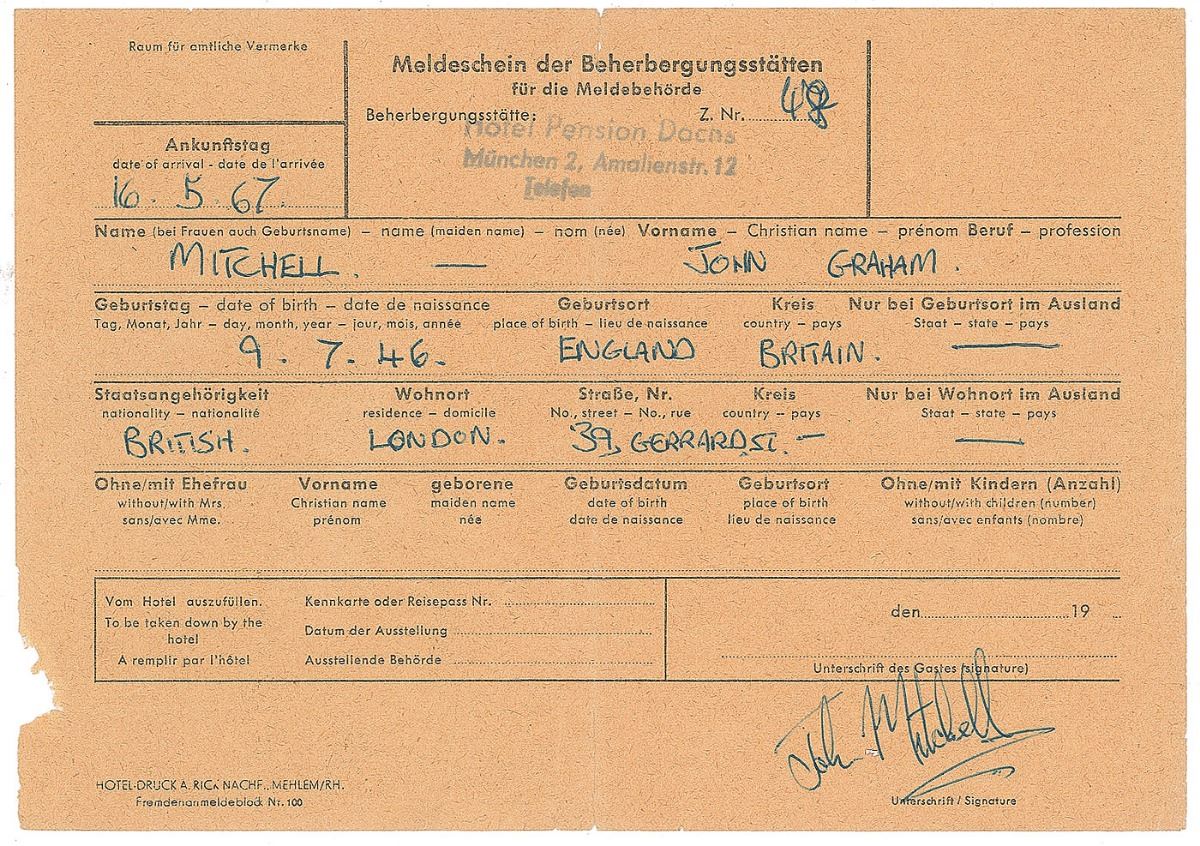 Raum für amtliche Vermerke
Meldeschein der Beherbergungsstätten
für die Meldebehörde
Beherbergungsstätte:
Z. Nr.
Hotel Pension Dachs
München 2, Amalienstr. 12
Telefon
Ankunftstag
date of arrival - date de l'arrivée
16. 5. 67.
Name (bei Frauen auch Geburtsname) – name (maiden name) – nom (née) Vorname – Christian name – prénom Beruf – profession
MITCHELL. — JOHN GRAHAM.
Geburtstag – date of birth – date de naissance Geburtsort Kreis Nur bei Geburtsort im Ausland
Tag, Monat, Jahr – day, month, year – jour, mois, année place of birth – lieu de naissance country – pays Staat – state – pays
9. 7. 46. ENGLAND BRITAIN. —
Staatsangehörigkeit Wohnort Straße, Nr. Kreis Nur bei Wohnort im Ausland
nationality – nationalité residence – domicile No., street – No., rue country – pays Staat – state – pays
BRITISH. LONDON. 39, GERRARD ST. – —
Ohne/mit Ehefrau Vorname geborene Geburtsdatum Geburtsort Ohne/mit Kindern (Anzahl)
without/with Mrs. Christian name maiden name date of birth place of birth without/with children (number)
sans/avec Mme. prénom née date de naissance lieu de naissance sans/avec enfants (nombre)
Vom Hotel auszufüllen.
To be taken down by the
hotel
A remplir par l'hôtel
Kennkarte oder Reisepass Nr.
Datum der Ausstellung
Ausstellende Behörde
den 19
Unterschrift des Gastes (signature)
John Mitchell
Unterschrift / Signature
HOTEL-DRUCK A. RICK NACHF., MEHLEM/RH.
Fremdenanmeldeblock Nr. 100